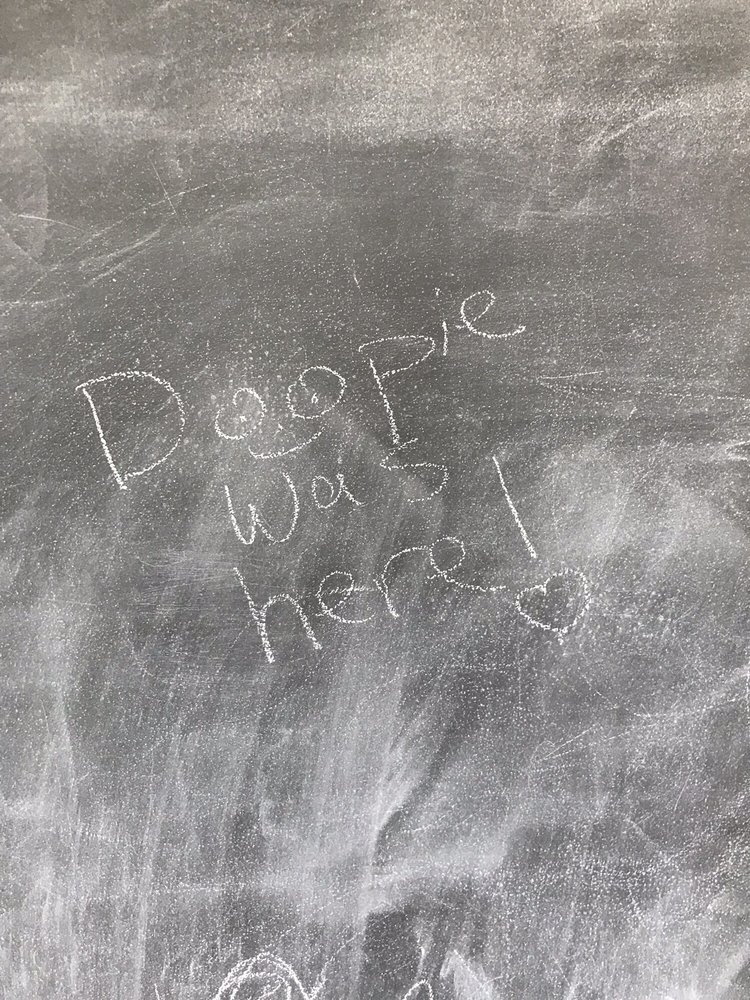 Doopie
was
here!